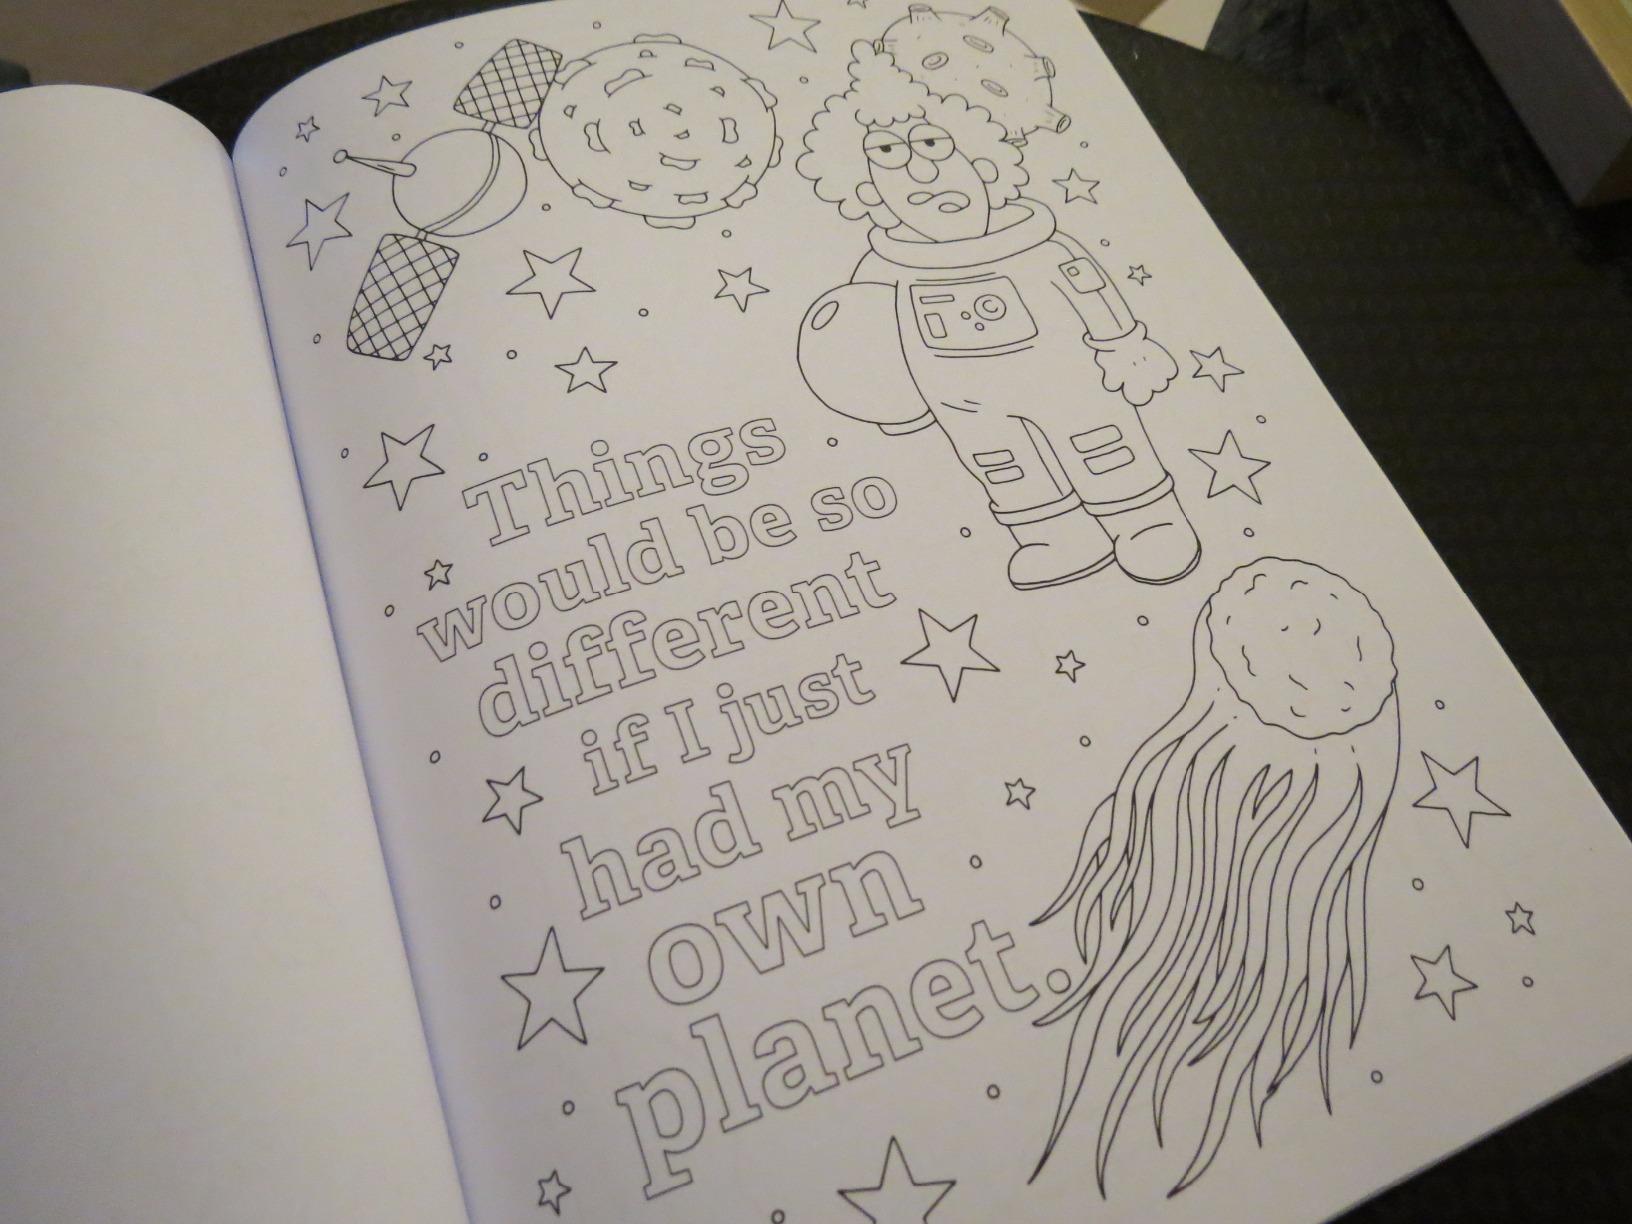 Things
would be so
different
if I just
had my
own
planet.